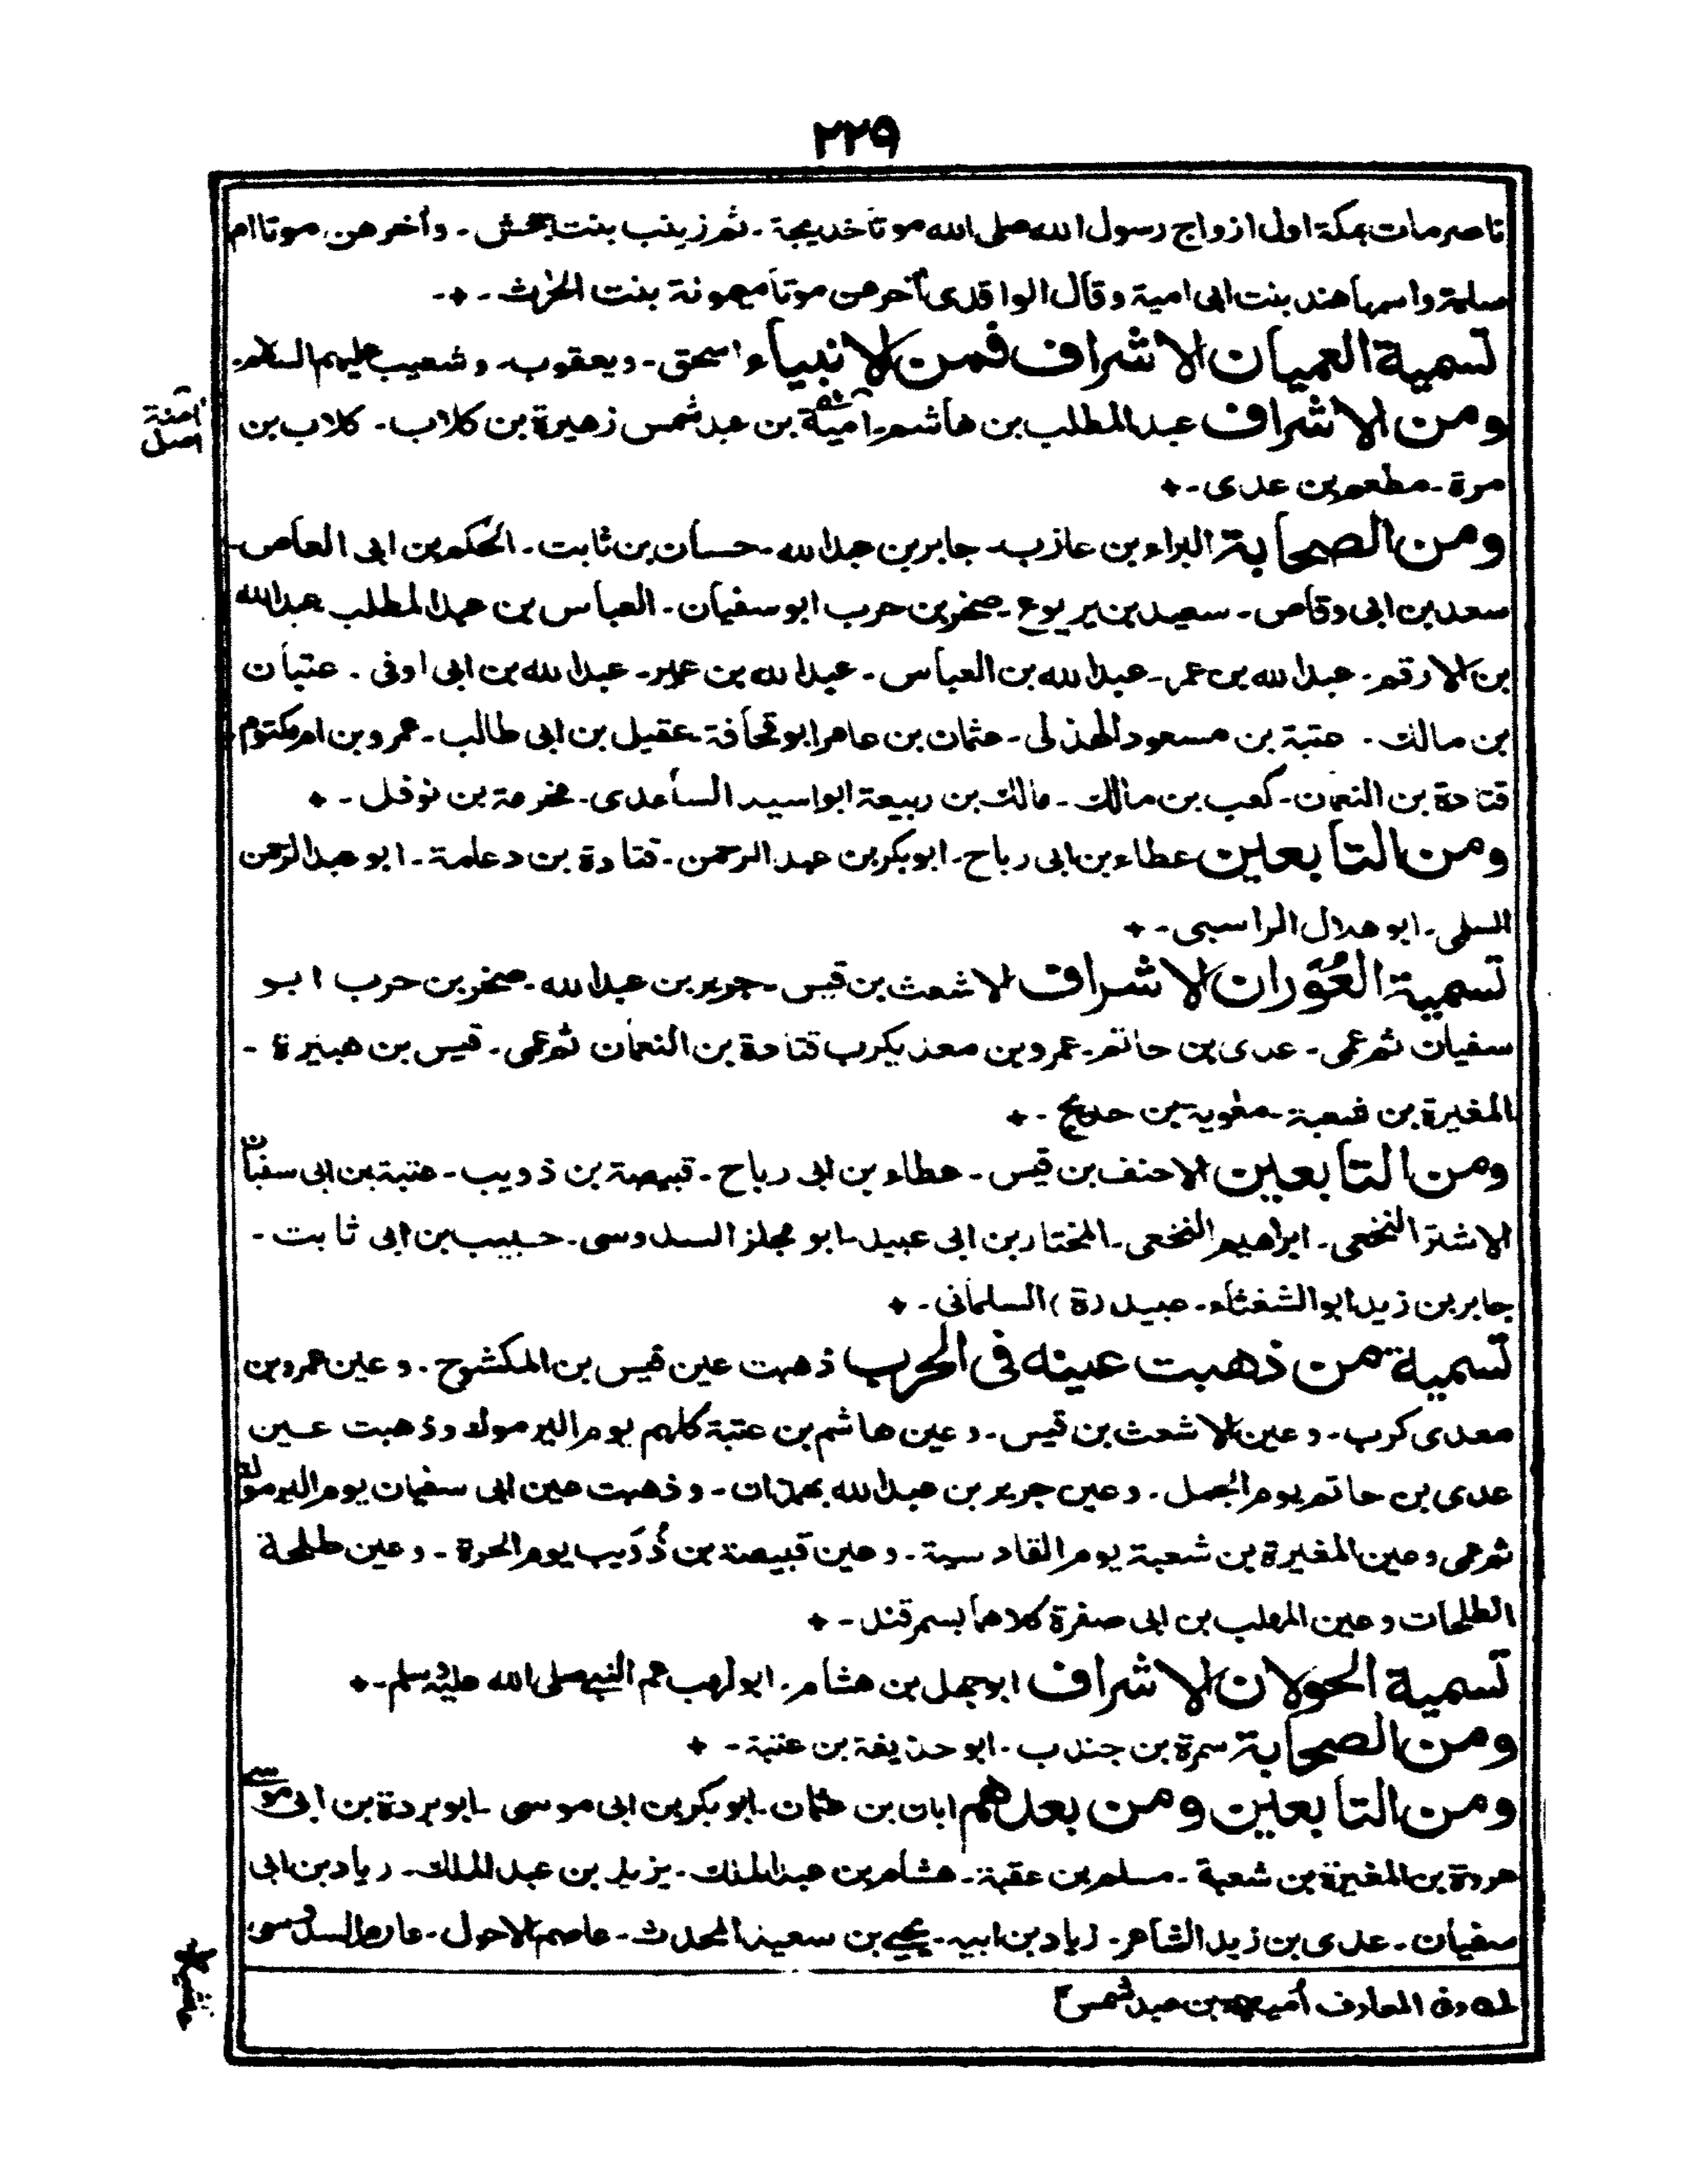 ٢٢٩
ناصر مات بمكة اول ازواج رسول الله صلى الله موتا خديجة - ثم زينب بنت جحش - وأخرهن موتا ام
سلمة واسمها هند بنت ابى امية وقال الواقدى آخرهن موتا ميمونة بنت الحرث -
تسمية العميان الاشراف فمن الانبياء اسحق - ويعقوب - وشعيب عليهم السلام -
ومن الاشراف عبد المطلب بن هاشم - امية بن عبد شمس زهيرة بن كلاب - كلاب بن
آمنة
اصل
مرة - مطعم بن عدى -
ومن الصحابة البراء بن عازب - جابر بن عبد الله - حسان بن ثابت - الحكم بن ابى العاص -
سعد بن ابى وقاص - سعيد بن يربوع - صخر بن حرب ابو سفيان - العباس بن عبد المطلب عبد الله
بن الارقم - عبد الله بن عمر - عبد الله بن العباس - عبد الله بن عمير - عبد الله بن ابى اوفى - عتبان
بن مالك - عتبة بن مسعود الهذلى - عثمان بن عامر ابو قحافة - عقيل بن ابى طالب - عمرو بن ام مكتوم
قتادة بن النعمان - كعب بن مالك - مالك بن ربيعة ابو اسيد الساعدى - مخرمة بن نوفل -
ومن التابعين عطاء بن ابى رباح - ابو بكر بن عبد الرحمن - قتادة بن دعامة - ابو عبد الرحمن
السلمى - ابو هلال الراسبى -
تسمية العُوران الاشراف الاشعث بن قيس - جرير بن عبد الله - صخر بن حرب ابو
سفيان ثم عمى - عدى بن حاتم - عمرو بن معد يكرب قتادة بن النعمان ثم عمى - قيس بن هبيرة -
المغيرة بن شعبة - معوية بن حديج -
ومن التابعين الاحنف بن قيس - عطاء بن ابى رباح - قبيصة بن ذويب - عتبة بن ابى سفيان
الاشتر النخعى - ابراهيم النخعى - المختار بن ابى عبيد - ابو مجلز السدوسى - حبيب بن ابى ثابت -
جابر بن زيد ابو الشعثاء - عبيد (ة) السلمانى -
تسمية من ذهبت عينه فى الحرب ذهبت عين قيس بن المكشوح - وعين عمرو بن
معدى كرب - وعين الاشعث بن قيس - وعين هاشم بن عتبة كلهم يوم اليرموك وذهبت عين
عدى بن حاتم يوم الجمل - وعين جرير بن عبد الله بهمذان - وذهبت عين ابى سفيان يوم اليرموك
ثم عمى وعين المغيرة بن شعبة يوم القادسية - وعين قبيصة بن ذُؤيب يوم الحرة - وعين طلحة
الطلحات وعين المهلب بن ابى صفرة كلاهما بسمرقند -
تسمية الحولان الاشراف ابو جهل بن هشام - ابو لهب عم النبى صلى الله عليه وسلم -
ومن الصحابة سمرة بن جندب - ابو حذيفة بن عتبة -
ومن التابعين ومن بعدهم ابان بن عثمان - ابو بكر بن ابى موسى - ابو بردة بن ابى موسى
عروة بن المغيرة بن شعبة - مسلم بن عقبة - هشام بن عبد الملك - يزيد بن عبد الملك - زياد بن ابى
سفيان - عدى بن زيد الشاعر - زياد بن ابيه - يحيى بن سعيد المحدث - عاصم الاحول - عارم السدوسى
لـه وفى المعارف أمية بن عبد شمس